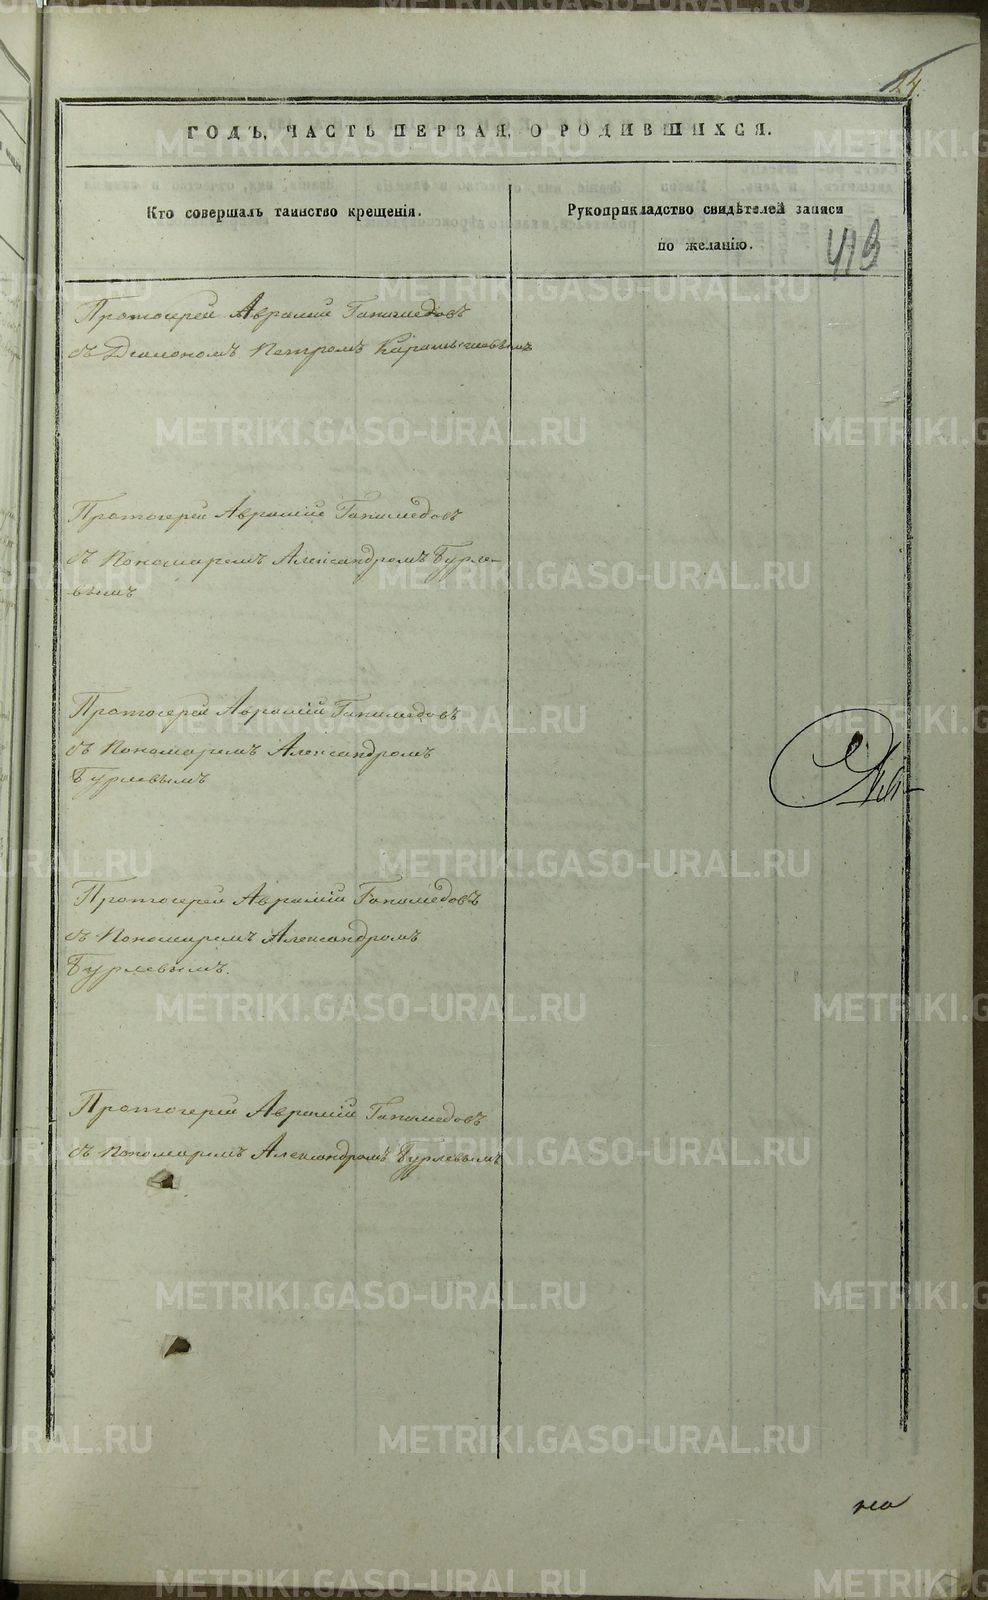 24.
ГОДЪ, ЧАСТЬ ПЕРВАЯ, О РОДИВШИХСЯ.
Кто совершалъ таинство крещенія.
Рукоприкладство свидѣтелей записи
по желанію.
413
Протоіерей Аврамій Ганимедовъ
съ Діакономъ Петромъ
Протоіерей Аврамій Ганимедовъ
съ Пономаремъ Александромъ Бурле-
вымъ
Протоіерей Аврамій Ганимедовъ
съ Пономаремъ Александромъ
Бурлевымъ
Протоіерей Аврамій Ганимедовъ
съ Пономаремъ Александромъ
Бурлевымъ.
Протоіерей Аврамій Ганимедовъ
съ Пономаремъ Александромъ Бурлевымъ
METRIKI.GASO-URAL.RU